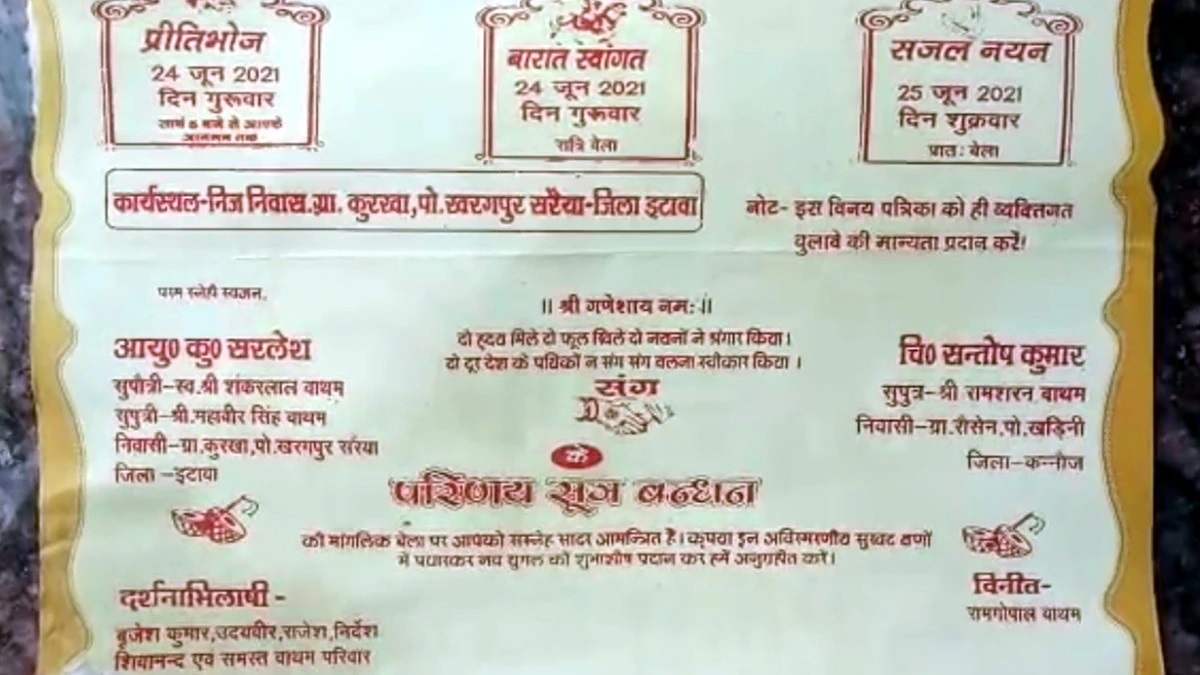 प्रीतिभोज
24 जून 2021
दिन गुरूवार
सायं 6 बजे से आपके
आगमन तक
बारात स्वागत
24 जून 2021
दिन गुरूवार
रात्रि वेला
सजल नयन
25 जून 2021
दिन शुक्रवार
प्रातः वेला
कार्यस्थल-निज निवास.ग्रा. कुरखा,पो.खरगपुर सरैया-जिला इटावा
नोट- इस विनय पत्रिका को ही व्यक्तिगत
वुलावे की मान्यता प्रदान करें!
परम स्नेही स्वजन,
॥ श्री गणेशाय नमः ॥
दो हृदय मिले दो फूल खिले दो नयनों ने श्रंगार किया।
दो दूर देश के पथिकों न संग संग चलना स्वीकार किया ।
आयु0 कु0 सरलेश
सुपौत्री-स्व.श्री शंकरलाल वाथम
सुपुत्री-श्री.महावीर सिंह वाथम
निवासी-ग्रा.कुरखा,पो.खरगपुर सरैया
जिला -इटावा
संग
चि0 सन्तोष कुमार
सुपुत्र-श्री रामशरन वाथम
निवासी-ग्रा.रौसेन.पो.खड़िनी
जिला-कन्नौज
के
परिणय सूत्र बन्धन
की मांगलिक बेला पर आपको सस्नेह सादर आमन्त्रित है। कृपया इन अविस्मरणीय सुखद क्षणों
में पधारकर नव युगल को शुभाशीष प्रदान कर हमें अनुग्रहीत करें।
दर्शनाभिलाषी -
बृजेश कुमार,उदयवीर,राजेश,निर्देश
शिवानन्द एव समस्त वाथम परिवार
विनीत-
रामगोपाल वाथम